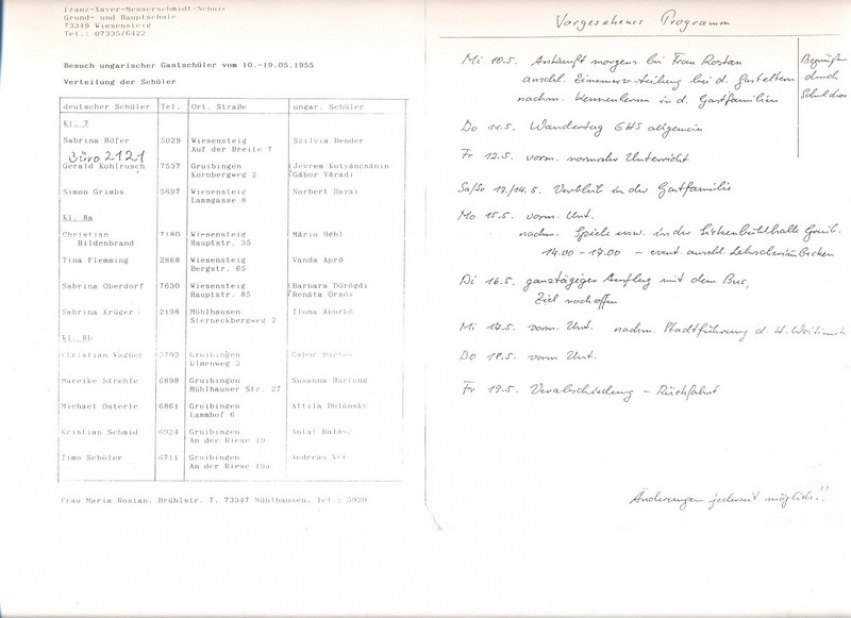 Franz-Xaver-Messerschmidt-Schule
Grund- und Hauptschule
73349 Wiesensteig
Tel.: 07335/6422
Besuch ungarischer Gastschüler vom 10.-19.05.1955
Verteilung der Schüler
deutscher Schüler Tel. Ort. Straße ungar. Schüler
Kl. 7
Sabrina Höfer 5029 Wiesensteig Szilvia Bender
Auf der Breite 7
Büro 2121
Gerald Kohlrusch 7537 Gruibingen Jevrem Kutyáncsánin
Kornbergweg 2 Gábor Váradi
Simon Grimbs 5697 Wiesensteig Norbert
Lammgasse 8
Kl. 8a
Christian 7180 Wiesensteig Mário
Hildenbrand Hauptstr. 35
Tina Flemming 2868 Wiesensteig Vanda Apró
Bergstr. 65
Sabrina Oberdorf 7630 Wiesensteig Barbara Dörögdi
Hauptstr. 85 Renáta Orsós
Sabrina Krüger 2198 Mühlhausen Ilona
Sterneckbergweg 2
Kl. 8b
Christian Wagner 5703 Gruibingen Gábor
Ulmenweg 3
Mareike Strehle 6898 Gruibingen Susanna Hartung
Mühlhauser Str. 27
Michael Osterle 6861 Gruibingen Attila Dulánsky
Lammhof 6
Kristian Schmid 6924 Gruibingen Antal Balász
An der Riese 19
Timo Schüler 6711 Gruibingen Andreas
An der Riese 19a
Frau Maria Rostan, Brühlstr. 7, 73347 Mühlhausen, Tel.: 5920
Vorgesehenes Programm
Mi 10.5. Ankunft morgens bei Frau Rostan
anschl. Zimmerverteilung bei d. Gasteltern
nachm. Kennenlernen in d. Gastfamilien
Begrüßung
durch
Do 11.5. Wandertag GHS allgemein
Fr 12.5. vorm. normaler Unterricht
Sa/So 13./14.5. Verbleib in der Gastfamilie
Mo 15.5. vorm. Unt.
nachm. Spiele usw. in der Sickenbühlhalle Gruib.
14.00 - 17.00 - event. anschl. Lehrschwimmbecken
Di 16.5. ganztägiger Ausflug mit dem Bus,
Ziel noch offen
Mi 17.5. vorm. Unt. nachm. Stadtführung d. H.
Do 18.5. vorm Unt.
Fr 19.5. Verabschiedung - Rückfahrt
Änderungen jederzeit möglich!!